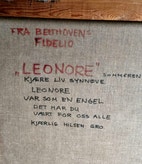 FRA BEETHOVENS
FIDELIO
„LEONORE" SOMMEREN
KJÆRE LIV SYNNØVE
LEONORE
VAR SOM EN ENGEL
DET HAR DU
VÆRT FOR OSS ALLE
KJÆRLIG HILSEN GRO